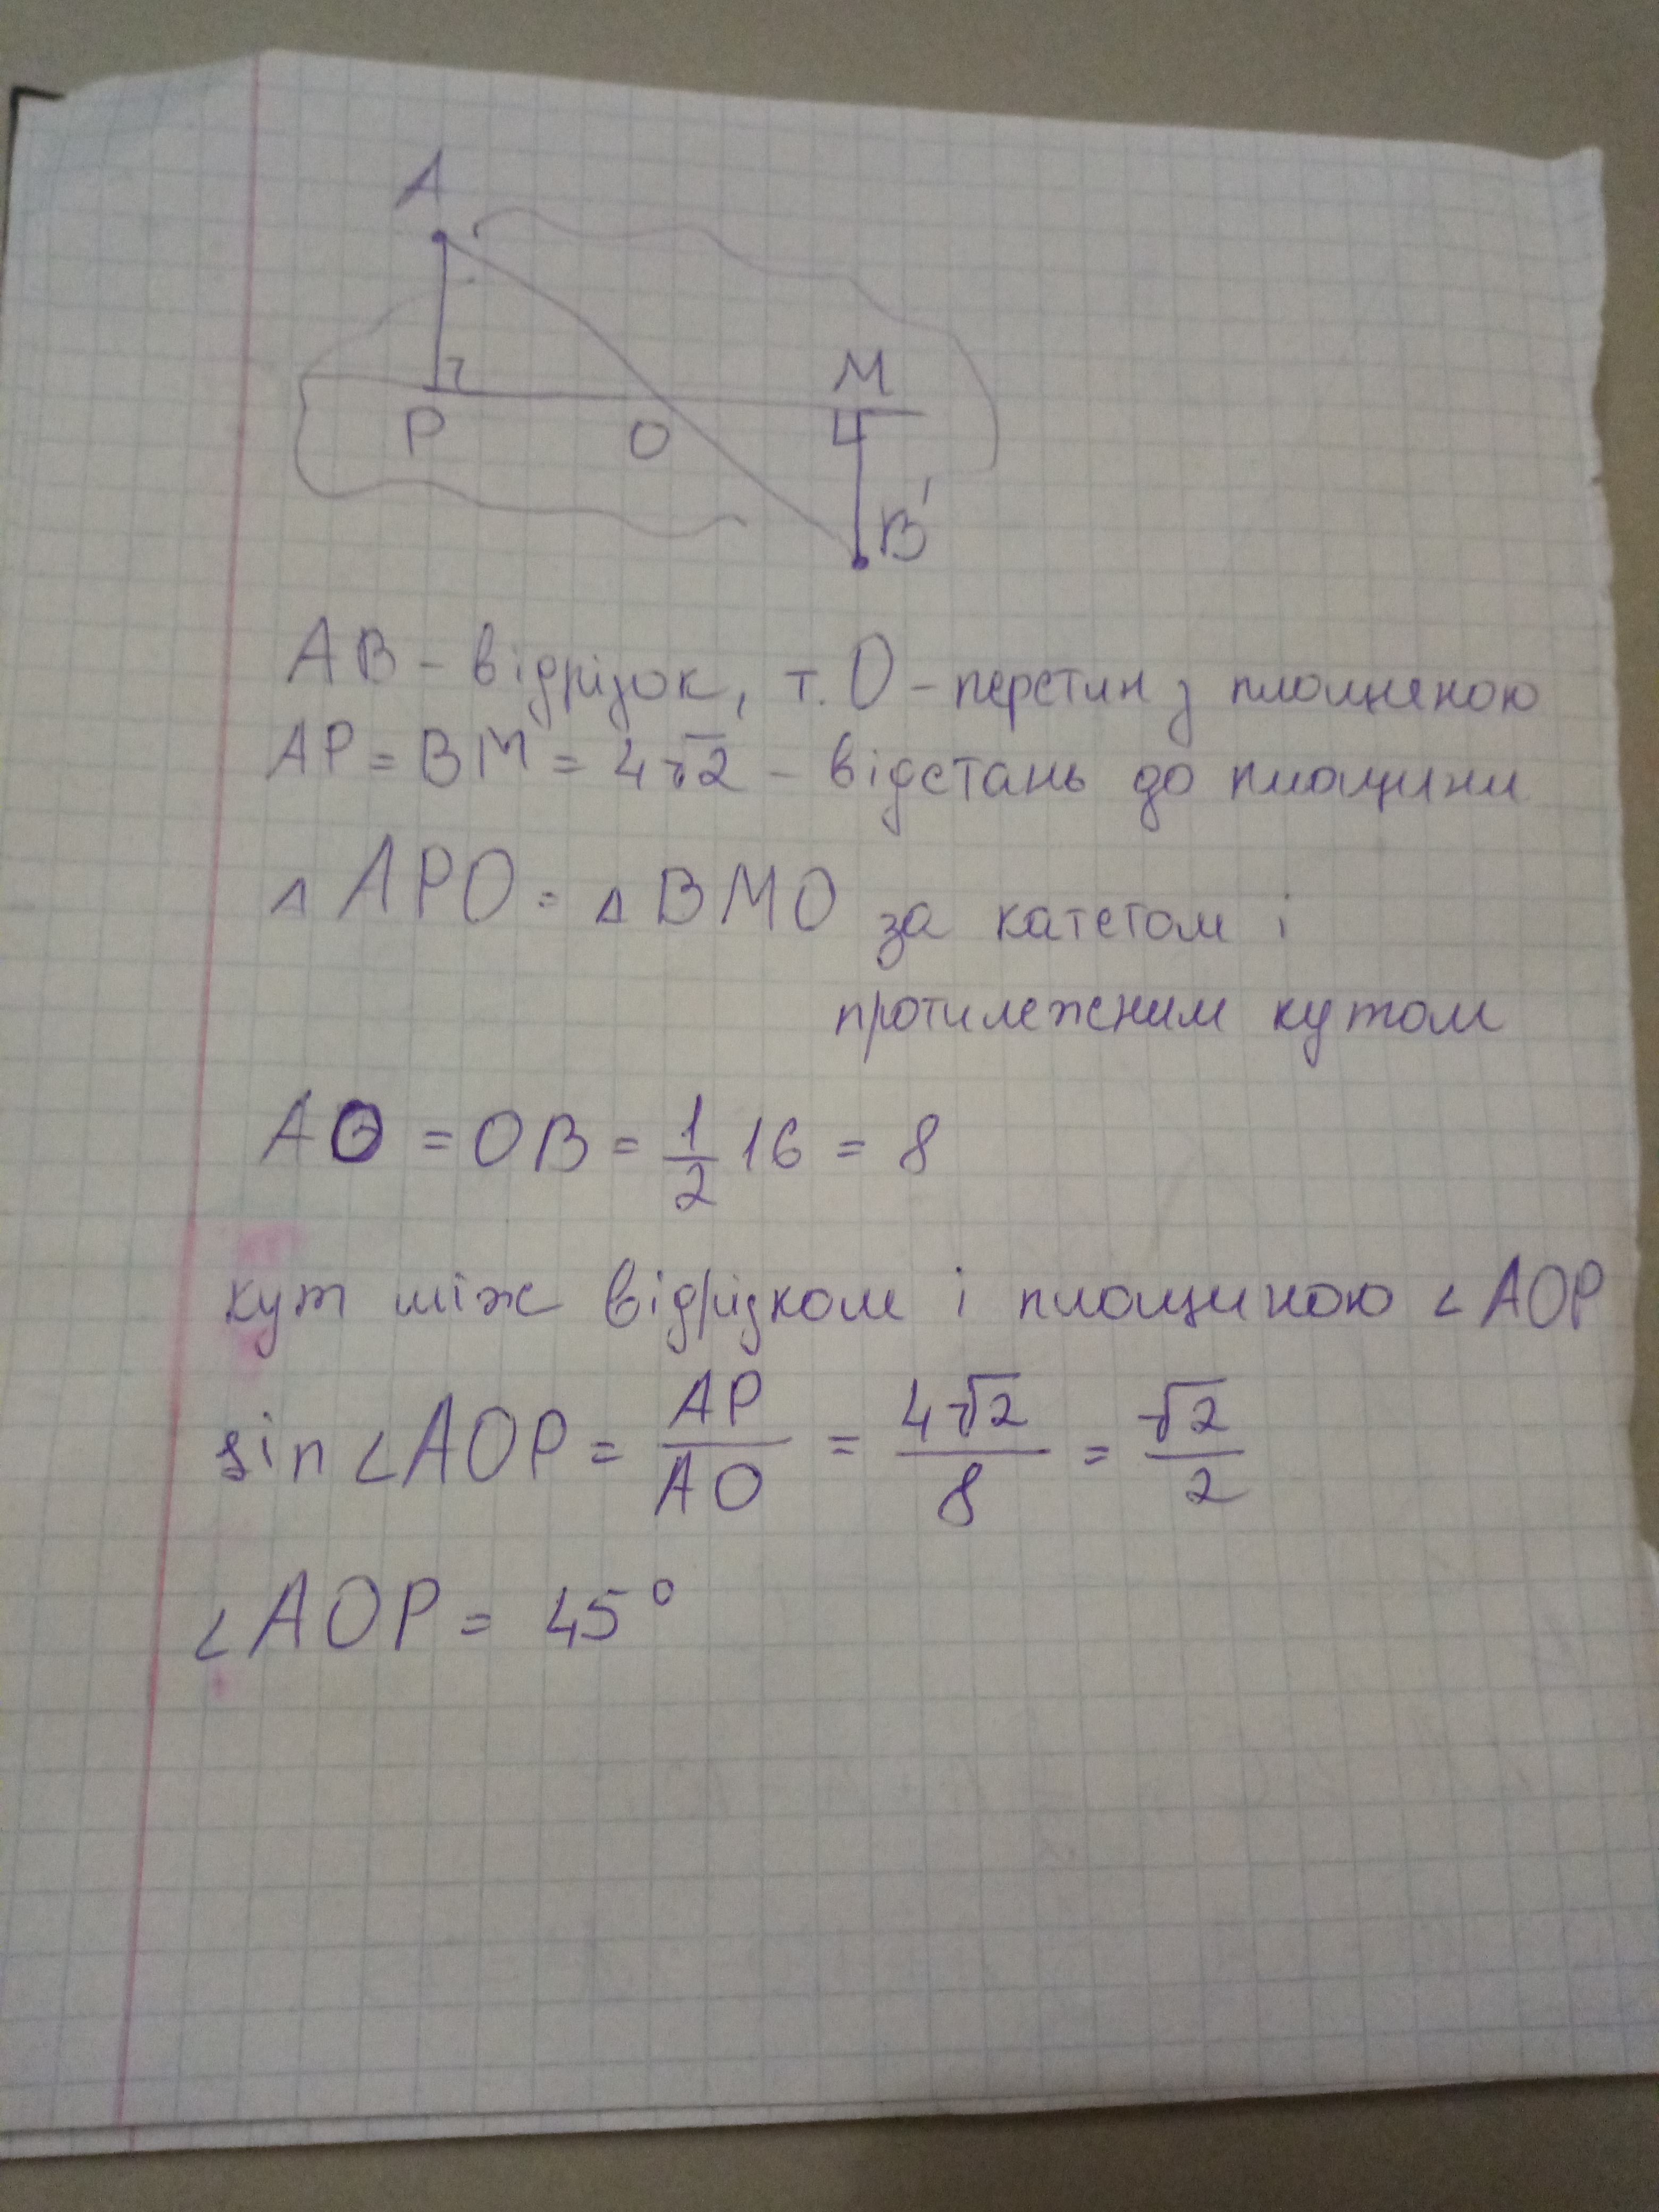 A
M
P
O
B'
AB - відрізок, т. O - перетин з площиною
AP = BM = 4√2 - відстань до площини
△ APO = △ BMO за катетом і
протилежним кутом
AO = OB = 1/2 16 = 8
кут між відрізком і площиною ∠ AOP
sin ∠ AOP = AP/AO = 4√2/8 = √2/2
∠ AOP = 45°